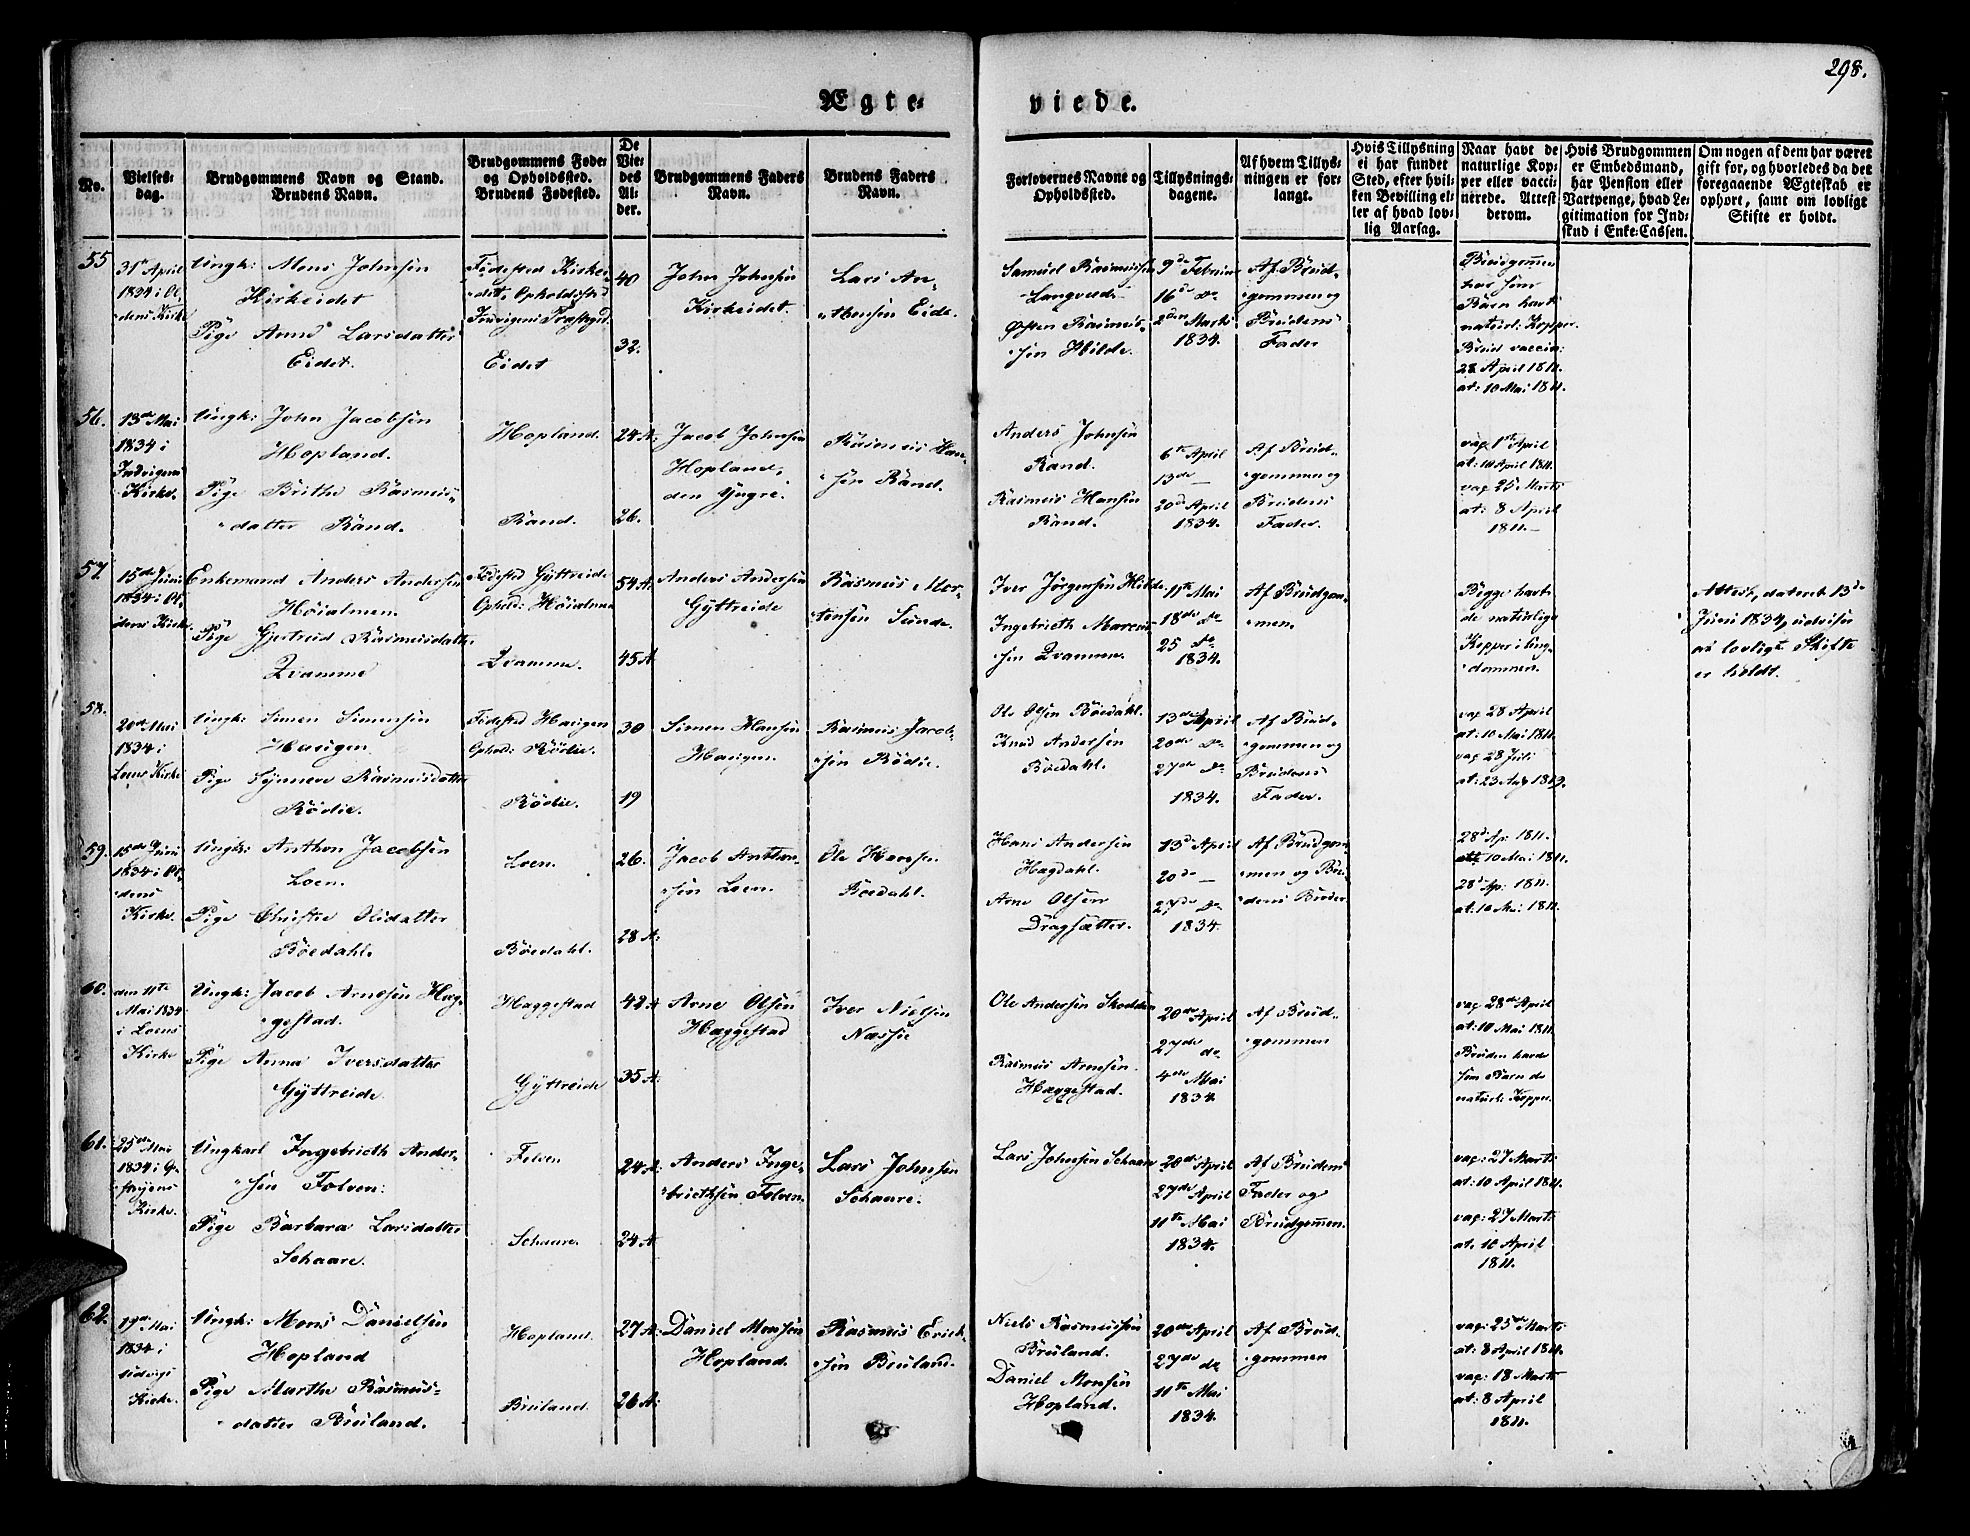 298.
Ægte-
viede.
No.
Vielses-
dag.
Brudgommens Navn og Stand.
Brudens Navn.
Brudgommens Føde-
og Opholdssted.
Brudens Fødested.
De
Vie-
des
Al-
der.
Brudgommens Faders
Navn.
Brudens Faders
Navn.
Forlovernes Navne og
Opholdssted.
Tillysnings-
dagene.
Af hvem Tillys-
ningen er for-
langt.
Hvis Tillysning
ei har fundet
Sted, efter hvil-
ken Bevilling el-
ler af hvad lov-
lig Aarsag.
Naar havt de
naturlige Kop-
per eller vacci-
nerede. Attest
derom.
Hvis Brudgommen
er Embedsmand,
har Pension eller
Vartpenge, hvad Le-
gitimation for Ind-
skud i Enke-Cassen.
Om nogen af dem har været
gift før, og hvorledes da det
foregaaende Ægteskab er
ophørt, samt om lovligt
Skifte er holdt.
55
31te April
1834 i Ol-
dens Kirke
Ungk: Mons Johnsen
Kirkeidet
Pige Anne Larsdatter
Eidet.
Fødested Kirke-
idet, Opholdssted
Indvigens Præstegd.
Eidet
40
32.
John Johnsen
Kirkeidet.
Lars An-
thensen Eide.
Samuel Rasmussen
Langvede
Øften Rasmus-
sen Hilde.
9de Februar
16de do
2den Marts
1834.
Af Brud-
gommen og
Brudens
Fader
Brudgommen
har som
Barn havt
naturl: Kopper.
Brud vaccin:
28 April 1811.
at: 10 Mai 1811.
56.
13de Mai
1834 i
Indvigens
Kirke.
Ungk: John Jacobsen
Hopland.
Pige Brithe Rasmus-
datter Rand.
Hopland.
Rand.
24 A.
26.
Jacob Johnsen
Hopland,
den Yngre.
Rasmus Han-
sen Rand.
Anders Johnsen
Rand.
Rasmus Hansen
Rand.
6te April
13de —
20de April
1834.
Af Brud-
gommen og
Brudens
Fader.
vac: 1ste April
at: 10 April 1811.
vac: 25 Marts
at: 8 April
1811.—
57.
15de Juni
1834 i Ol-
dens Kirke.
Enkemand Anders Andersen
Höialmen.
Pige Gjertrud Rasmusdatter
Qvamme
Fødested Gyttreide
Ophold: Höialmen
Qvamme.
54 A.
45 A
Anders Andersen
Gyttreide
Rasmus Mor-
tensen Sunde.
Iver Jörgensen Hilde
Ingebrieth Marcus-
sen Qvammen.
11te Mai
18de do
25 do
1834.
Af Brudgom-
men.
Begge havt
de naturlige
Kopper i Ung-
dommen.
Attest, dateret 13de
Juni 1834, udviser
at lovligt Skifte
er holdt.
58.
20de Mai
1834 i
Loens Kirke
Ungk: Simen Simensen
Haugen
Pige Synneve Rasmusdatter
Rödie.
Fødested Haugen
Ophold: Rödie.
Rödie.
30
19
Simen Hansen
Haugen.
Rasmus Jacob-
sen Rödie.
Ole Olsen Böedahl.
Knud Andersen
Böedahl.
13de April
20de do
27de do
1834.
Af Brud-
gommen og
Brudens
Fader.
vac 28 April
at: 10 Mai 1811.
vac 28 Juli
at: 23 Aug 1819.
59.
15de Juni
1834 i Ol-
dens
Kirke.
Ungk: Anthon Jacobsen
Loen.
Pige Christie Olsdatter
Böedahl.
Loen.
Böedahl.
26.
28 A.
Jacob Anthon-
sen Loen.
Ole Hansen
Böedahl.
Hans Andersen
Hagdahl.
Arne Olsen
Dragsætter.
13de April
20de —
27de do
1834.
Af Brudgom-
men og Bru-
dens Broder
28de Ap. 1811.
at: 10 Mai 1811.
28de Ap: 1811.
at: 10 Mai 1811.
60.
den 11te
Mai 1834
i Loens
Kirke
Ungk: Jacob Arnesen Hag-
gestad.
Pige Anna Iversdatter
Gyttreide.
Haggestad
Gyttreide
42 A
35 A.
Arne Olsen
Haggestad
Iver Nielsen
Næssie
Ole Andersen Skodden
Rasmus Arnesen
Haggestad.
20de April
27de do
4de Mai
1834.
Af Brud-
gommen
vac 28de April
at: 10 Mai 1811.
Bruden havde
som Barn de
naturl: Kopper.
61.
25de Mai
1834 i
Kirke.
Ungkarl Ingebrieth Ander-
sen Folven:
Pige Barbara Larsdatter
Schaare.
Folven
Schaare.
24 A.
24 A
Anders Inge-
briethsen Folven.
Lars Johnsen
Schaare.
Lars Johnsen Schaare
20de April
27de April
11te Mai
1834.
Af Brudens
Fader og
Brudgommen.
vac: 27 Marts
at: 10 April 1811.
vac: 27 Marts
at: 10 April
1811.
62.
19de Mai
1834 i
Kirke.
Ungk: Mons Danielsen
Hopland
Pige Marthe Rasmus-
datter Bruland.
Hopland.
Bruland.
27 A.
26 A.
Daniel Monsen
Hopland.
Rasmus Erick-
sen Bruland.
Niels Rasmussen
Bruland.
Daniel Monsen
Hopland.
20de April
27de do
11te Mai
1834.
Af Brud-
gommen
vac: 25de Marts
at: 8 April 1811.
vac: 18 Marts
at: 8 April
1811.